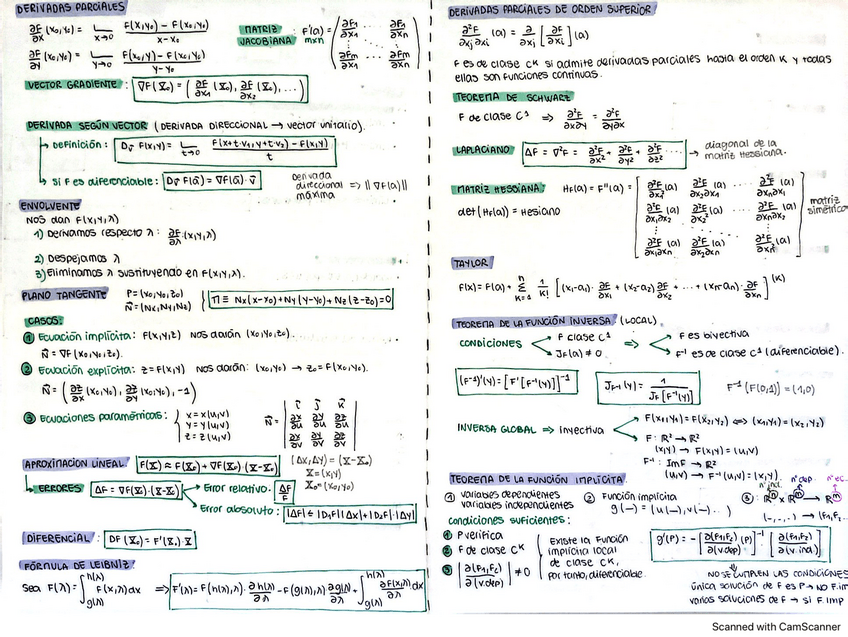 DERIVADAS PARCIALES
∂F/∂x (x₀,y₀) = lim x→0 F(x,y₀) − F(x₀,y₀) / x−x₀
∂F/∂y (x₀,y₀) = lim y→0 F(x₀,y) − F(x₀,y₀) / y−y₀
MATRIZ JACOBIANA : F'(a) = m×n ( ∂F₁/∂x₁ ... ∂F₁/∂xₙ ... ∂Fm/∂x₁ ... ∂Fm/∂xₙ )
VECTOR GRADIENTE : ∇F(x̄₀) = ( ∂F/∂x₁ (x̄₀), ∂F/∂x₂ (x̄₀), ... )
DERIVADA SEGÚN VECTOR (DERIVADA DIRECCIONAL → vector unitario).
→ Definición : Dv̄ F(x,y) = lim t→0 F(x+t·v₁, y+t·v₂) − F(x,y) / t
→ si F es diferenciable : Dv̄ F(ā) = ∇F(ā)·v̄
Derivada direccional máxima => ||∇F(a)||
ENVOLVENTE
NOS dan F(x,y,λ)
1) Derivamos respecto λ : ∂F/∂λ (x,y,λ)
2) Despejamos λ
3) Eliminamos λ sustituyendo en F(x,y,λ).
PLANO TANGENTE P=(x₀,y₀,z₀)
N̄=(Nx,Ny,Nz)
Π ≡ Nx(x−x₀)+Ny(y−y₀)+Nz(z−z₀)=0
CASOS:
① Ecuación implícita: F(x,y,z) nos darán (x₀,y₀,z₀).
N̄ = ∇F(x₀,y₀,z₀).
② Ecuación explícita: z=F(x,y) nos darán: (x₀,y₀) → z₀=F(x₀,y₀).
N̄ = ( ∂z/∂x (x₀,y₀), ∂z/∂y (x₀,y₀), −1 )
③ Ecuaciones paramétricas: { x=x(u,v) y=y(u,v) z=z(u,v)
N̄ = | i j k ∂x/∂u ∂y/∂u ∂z/∂u ∂x/∂v ∂y/∂v ∂z/∂v |
APROXIMACIÓN LINEAL F(x̄) ≈ F(x̄₀)+∇F(x̄₀)·(x̄−x̄₀)
(Δx,Δy) = (x̄−x̄₀)
x̄=(x,y)
x̄₀=(x₀,y₀)
→ ERRORES ΔF = ∇F(x̄₀)·(x̄−x̄₀)
Error relativo: ΔF/F
Error absoluto: |ΔF|≤|D₁F||Δx|+|D₂F|·|Δy|
DIFERENCIAL : DF(x̄₀) = F'(x̄₀)·x̄
FÓRMULA DE LEIBNIZ
Sea F(λ) = ∫ g(λ) h(λ) F(x,λ)dx => F'(λ) = F(h(λ),λ)·∂h(λ)/∂λ − F(g(λ),λ)·∂g(λ)/∂λ + ∫ g(λ) h(λ) ∂F(x,λ)/∂λ dx
DERIVADAS PARCIALES DE ORDEN SUPERIOR
∂²F/∂xj∂xi (a) = ∂/∂xj [∂F/∂xi] (a)
F es de clase Cᴷ si admite derivadas parciales hasta el orden K y todas
ellas son funciones continuas.
TEOREMA DE SCHWARZ
F de clase C¹ => ∂²F/∂x∂y = ∂²F/∂y∂x
LAPLACIANO ΔF = ∇²F = ∂²F/∂x² + ∂²F/∂y² + ∂²F/∂z² → diagonal de la matriz Hessiana.
MATRIZ HESSIANA HF(a) = F''(a) = [ ∂²F/∂x₁² (a) ∂²F/∂x₂∂x₁ (a) ... ∂²F/∂xₙ∂x₁ (a)
∂²F/∂x₁∂x₂ (a) ∂²F/∂x₂² (a) ... ∂²F/∂xₙ∂x₂ (a)
∂²F/∂x₁∂xₙ (a) ∂²F/∂x₂∂xₙ (a) ... ∂²F/∂xₙ² (a) ]
matriz simétrica
det(HF(a)) = Hesiano
TAYLOR
F(x) = F(a) + Σ K=1 n 1/K! [ (x₁−a₁)·∂F/∂x₁ + (x₂−a₂)∂F/∂x₂ + ... + (xₙ−aₙ)·∂F/∂xₙ ]⁽ᴷ⁾
TEOREMA DE LA FUNCIÓN INVERSA (LOCAL).
CONDICIONES F clase C¹ JF(a) ≠ 0 => F es biyectiva F⁻¹ es de clase C¹ (diferenciable).
(F⁻¹)'(y) = [F'[F⁻¹(y)]]⁻¹
JF⁻¹(y) = 1/JF[F⁻¹(y)]
F⁻¹(F(0,1)) = (1,0)
INVERSA GLOBAL => inyectiva F(x₁,y₁) = F(x₂,y₂) => (x₁,y₁) = (x₂,y₂)
F: ℝ² → ℝ²
(x,y) → F(x,y) = (u,v)
F⁻¹: Im F → ℝ²
(u,v) → F⁻¹(u,v) = (x,y).
TEOREMA DE LA FUNCIÓN IMPLÍCITA.
① variables dependientes
variables independientes
② Función implícita
g(−) = (u(−),v(−)...)
③: ℝⁿ × ℝᵐ → ℝᵐ
nº ind. nº dep. nº ec.
(−,−,..) → (F₁,F₂..
condiciones suficientes:
① P verifica
② F de clase Cᴷ
③ |∂(F₁,F₂)/∂(v.dep)| ≠ 0
Existe la función
implícita local
de clase Cᴷ,
por tanto, diferenciable.
g'(P) = −[∂(F₁,F₂)/∂(v.dep) (P)]⁻¹ · [∂(F₁,F₂)/∂(v.ind.)]
NO SE CUMPLEN LAS CONDICIONES
única solución de F es P → NO F.im
varias soluciones de F → sí F.imp
Scanned with CamScanner